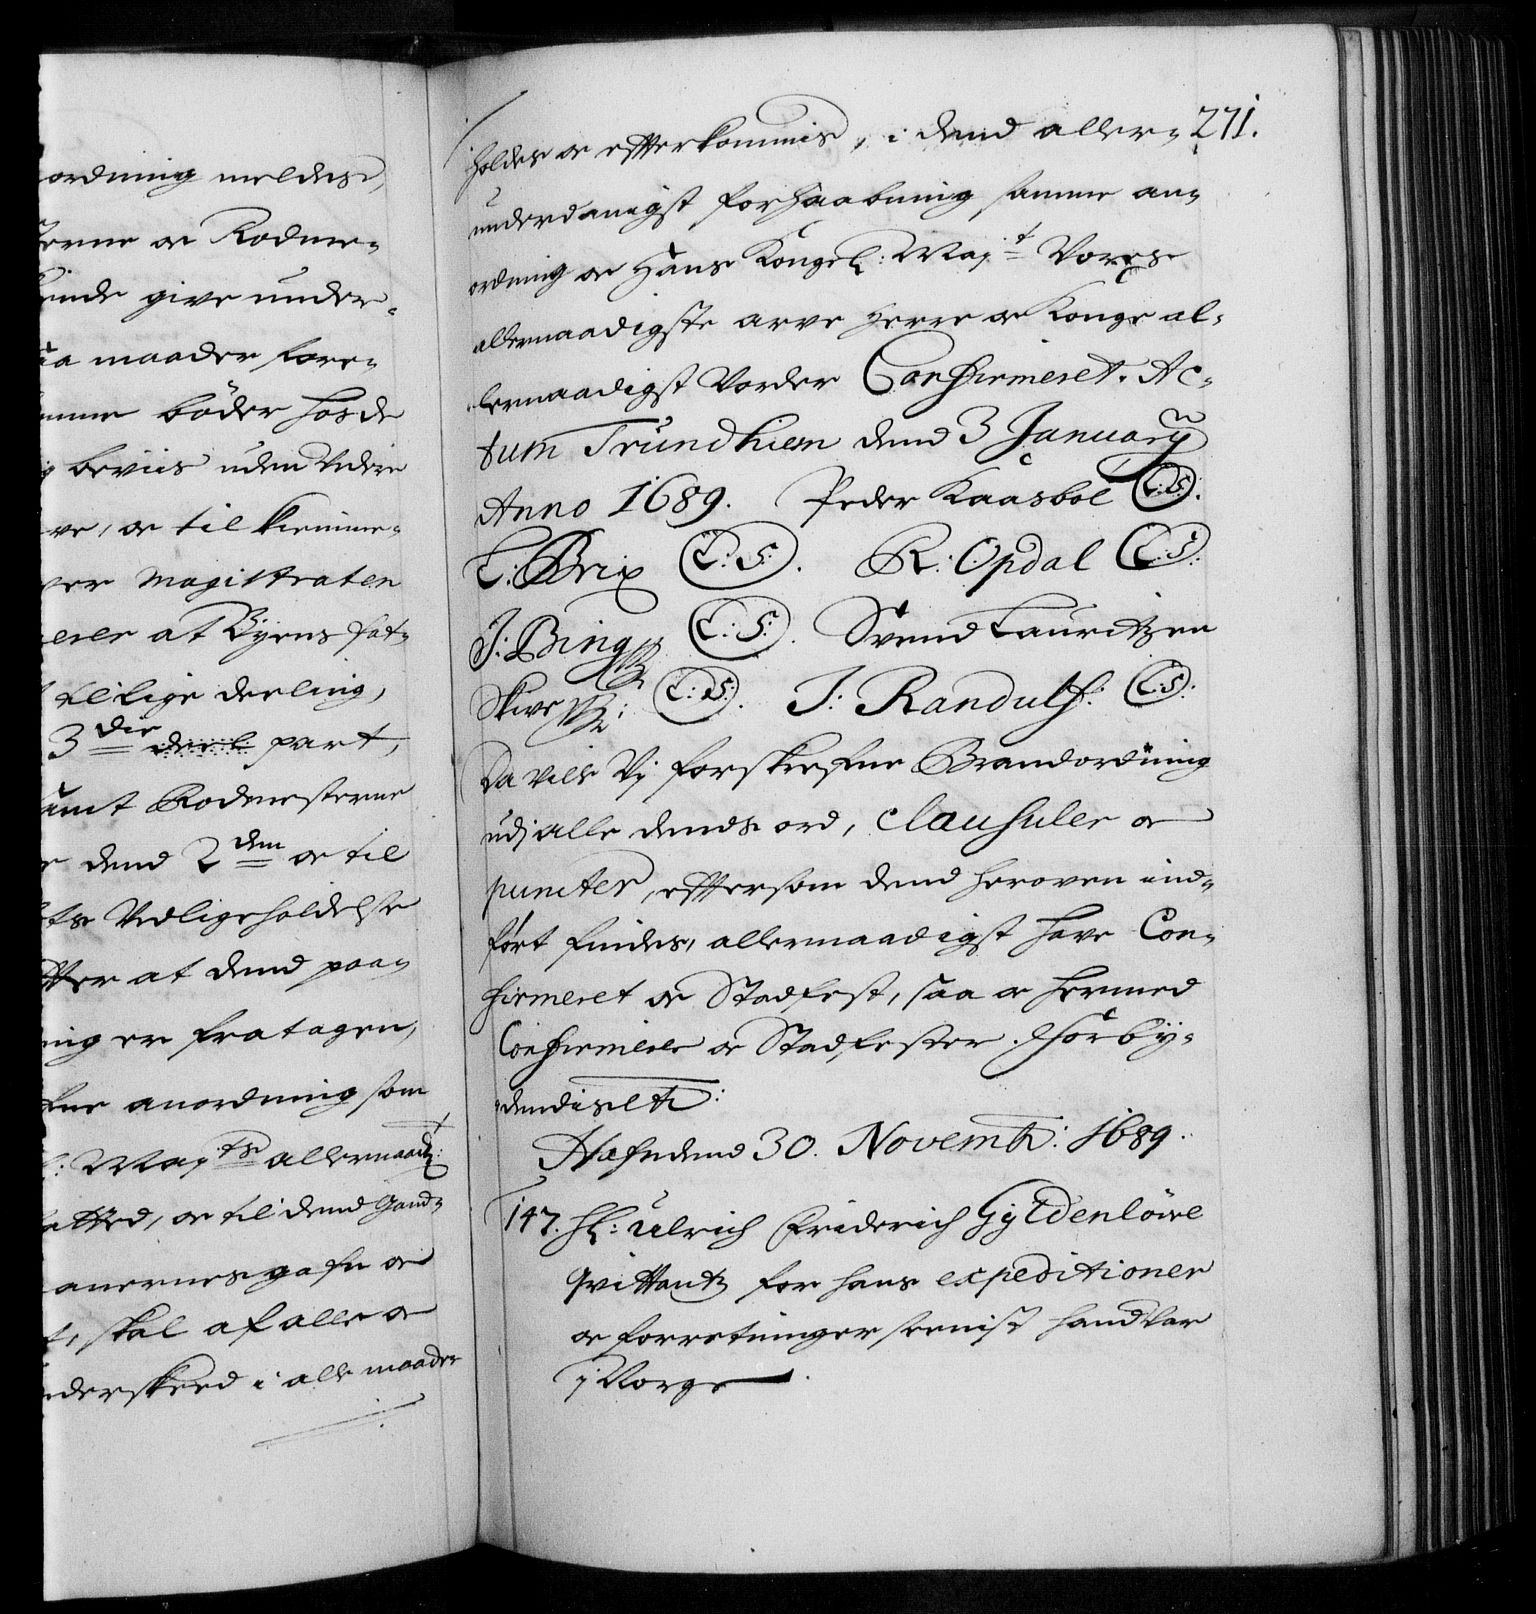 ordning meldes,
terne oc Rodme-
kiende give under-
saa maader fore-
samme bøder hos de
beviis uden videre
ve, oc til kiemme-
Magistraten
at Byens fat-
tilige deeling,
3 die deel part,
samt Rodmesterne
dend 2 den oc til
Vedligeholdelse
at dend paa-
er fratagen,
anordning som
Mayts allernaad:
oc til dend Ende
skal af alle oc
i alle maader
271.
holdes oc efterkommis, i dend aller-
underdanigst forhaabning samme an-
ordning oc Hans Kongel: Mayt Vores
allernaadigste arve Herre oc Konge al-
lernaadigst Vorder Confirmeret. Ac-
tum Trundhiem dend 3 January
Anno 1689. Peder Kaasbøl L:S:
L: Brix L:S:. R: Opdal L:S:
J: Bing L:S:. Svend Lauritzen
Skive L:S:. J: Randulf: L:S:
Da ville Vj forskrefne Brandordning
udj alle dends ord, Clausuler oc
puncter, effterssom dend heroven ind-
ført findes, allernaadigst have Con-
firmeret oc Stadfest, saa oc hermed
Confirmerer oc Stadfester. Forby-
dendis etc:
Hafn dend 30. Novemb: 1689.
147. H: Ulrich Friderich Gyldenløwe
Qvittantz for hans expeditioner
oc forretninger seenist hand var
j Norge